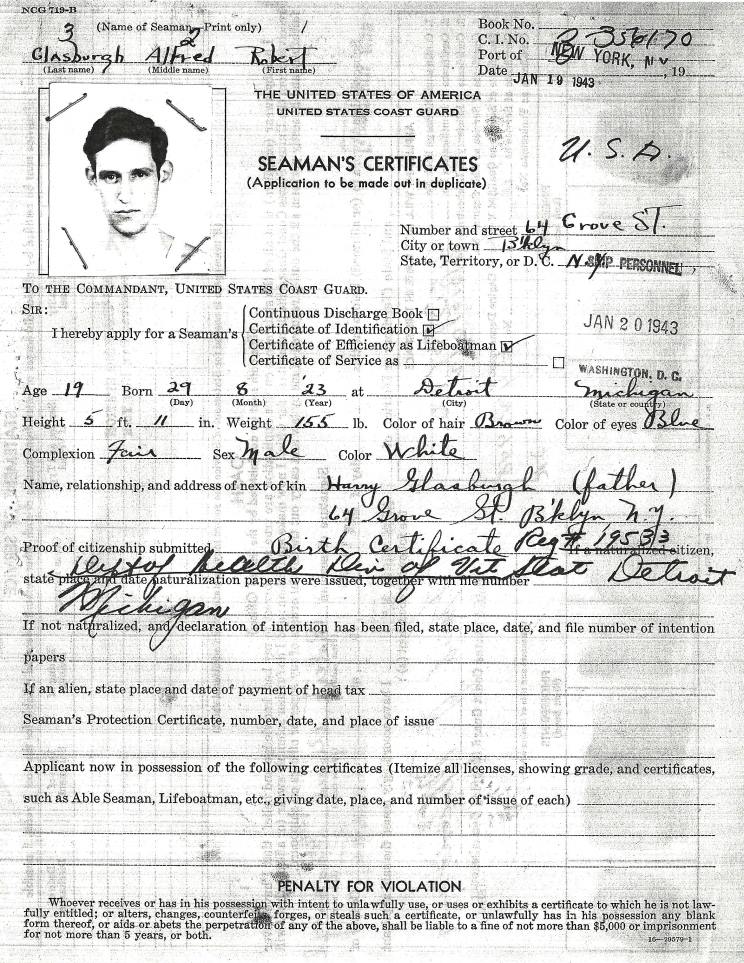 NCG 719-B
3 (Name of Seaman—Print only) 2 1
Glasburgh Alfred Robert
(Last name) (Middle name) (First name)
Book No.
C. I. No. 2 356170
Port of NEW YORK, N.Y.
Date JAN 19 1943 , 19
THE UNITED STATES OF AMERICA
UNITED STATES COAST GUARD
U. S. A.
SEAMAN'S CERTIFICATES
(Application to be made out in duplicate)
Number and street 64 Grove ST.
City or town B'klyn
State, Territory, or D. C. N.Y. PERSONNEL
TO THE COMMANDANT, UNITED STATES COAST GUARD.
SIR:
I hereby apply for a Seaman's
Continuous Discharge Book
Certificate of Identification
Certificate of Efficiency as Lifeboatman
Certificate of Service as
JAN 20 1943
WASHINGTON, D. C.
Age 19 Born 29 8 '23 at Detroit Michigan
(Day) (Month) (Year) (City) (State or country)
Height 5 ft. 11 in. Weight 155 lb. Color of hair Brown Color of eyes Blue
Complexion Fair Sex Male Color White
Name, relationship, and address of next of kin Harry Glasburgh (father)
64 Grove St. B'klyn N.Y.
Proof of citizenship submitted Birth Certificate Reg# 19533 If a naturalized citizen,
Dept of Health Div of Vit Stat Detroit
state place and date naturalization papers were issued, together with file number
Michigan
If not naturalized, and declaration of intention has been filed, state place, date, and file number of intention
papers
If an alien, state place and date of payment of head tax
Seaman's Protection Certificate, number, date, and place of issue
Applicant now in possession of the following certificates (Itemize all licenses, showing grade, and certificates,
such as Able Seaman, Lifeboatman, etc., giving date, place, and number of issue of each)
PENALTY FOR VIOLATION
Whoever receives or has in his possession with intent to unlawfully use, or uses or exhibits a certificate to which he is not law-
fully entitled; or alters, changes, counterfeits, forges, or steals such a certificate, or unlawfully has in his possession any blank
form thereof, or aids or abets the perpetration of any of the above, shall be liable to a fine of not more than $5,000 or imprisonment
for not more than 5 years, or both.
16—29579-1